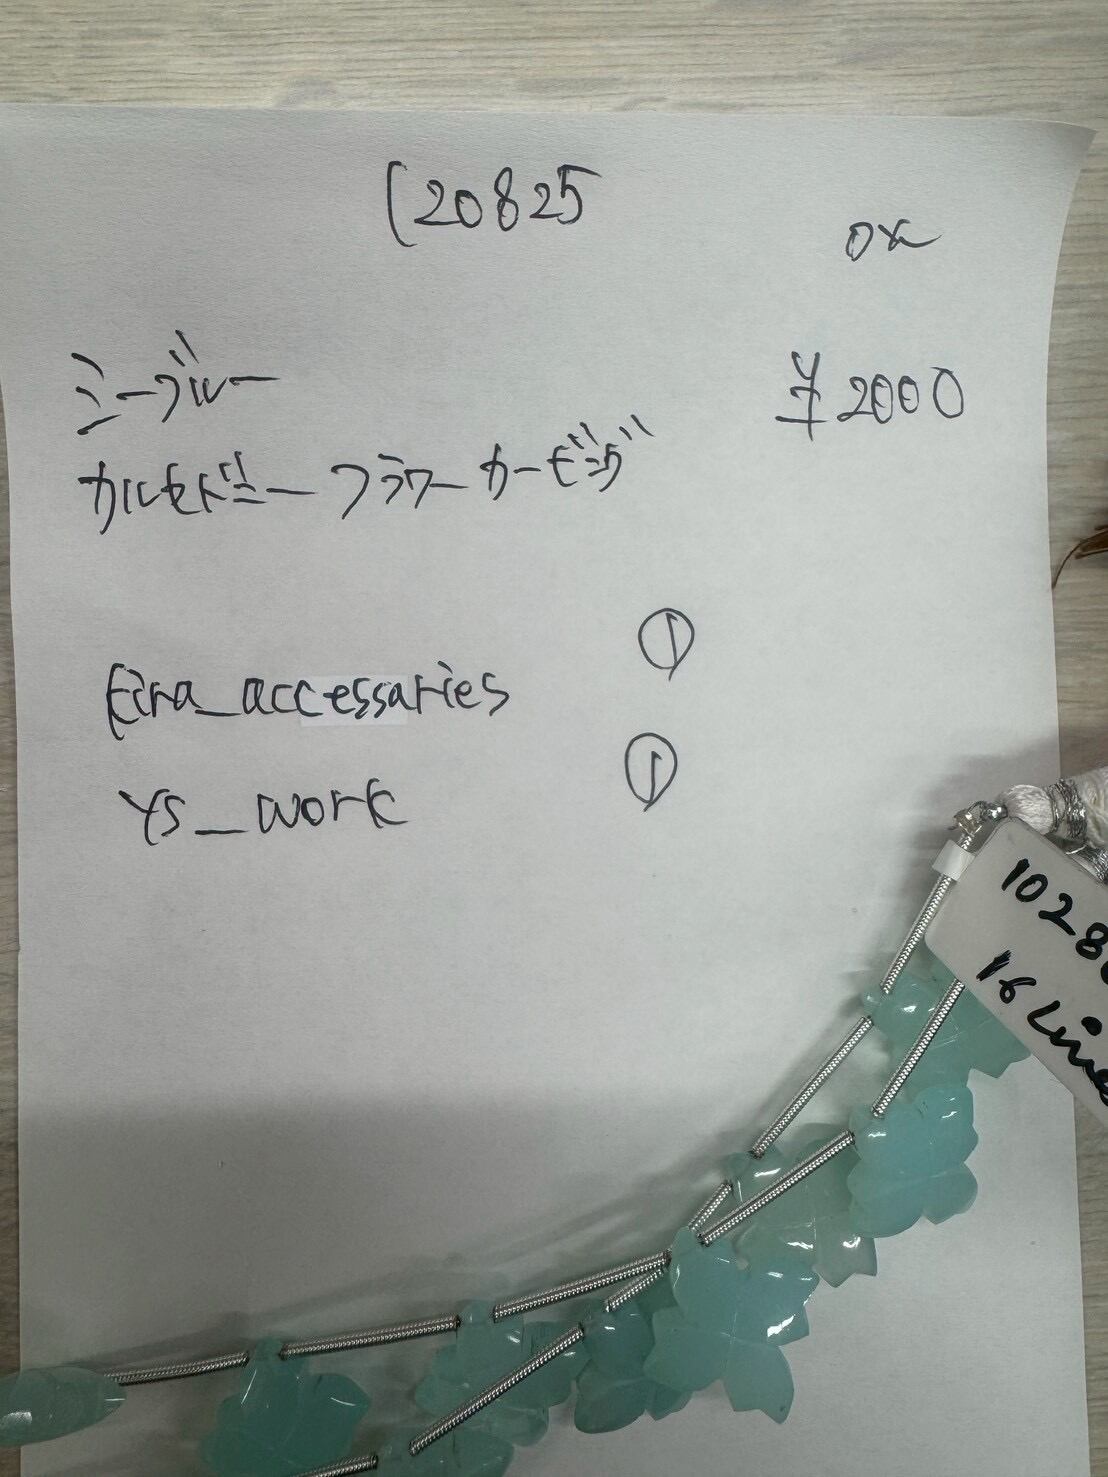 120825
シーブルー
¥2000
カルセドニー フラワー カービング
Eira_accessaries ①
YS_work ①
1028
16 Lines